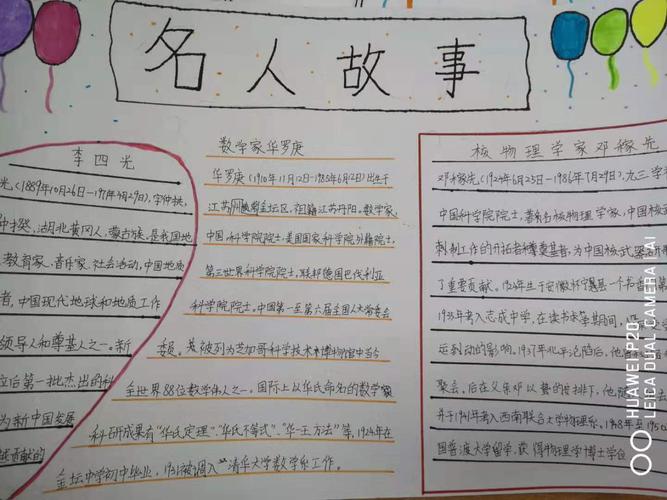 名人故事
李四光
光,(1889年10月26日-1971年4月29日),字仲拱,
仲揆,湖北黄冈人,蒙古族,是我国地
教育家、音乐家、社会活动,中国地质
者,中国现代地球和地质工作
领导人和尊基人之一。新
立后第一批杰出的科
为新中国发展
贡献的
数学家华罗庚
华罗庚(1910年11月12日-1985年6月12日)出生于
江苏金坛区,祖籍江苏丹阳。数学家,
中国科学院院士,美国国家科学院外籍院士,
第三世界科学院院士,联邦德国巴伐利亚
科学院院士。中国第一至第六届全国人大常委会
委员。被列为芝加哥科学技术博物馆中当今
全世界88位数学伟人之一。国际上以华氏命名的数学
科研成果有“华氏定理”、“华氏不等式”、“华-王方法”等,1924年在
金坛中学初中毕业,1931被调入清华大学数学系工作。
核物理学家邓稼先
邓稼先,(1924年6月25日-1986年7月29日),九三学
中国科学院院士,著名核物理学家,中国核武
制工作的开拓者和奠基者,为中国核武器
了重要贡献。1924年生于安徽怀宁县一个书香
1935年考入志成中学,在读书求学期间,
运动的影响。1937年北平沦陷后,他
聚会。后在父亲的安排下,他
并于1941年考入西南联合大学物理系。1948年至1950
国普渡大学留学,获得物理学博士学位
HUAWEI P20
LEICA DUAL CAMERA | AI